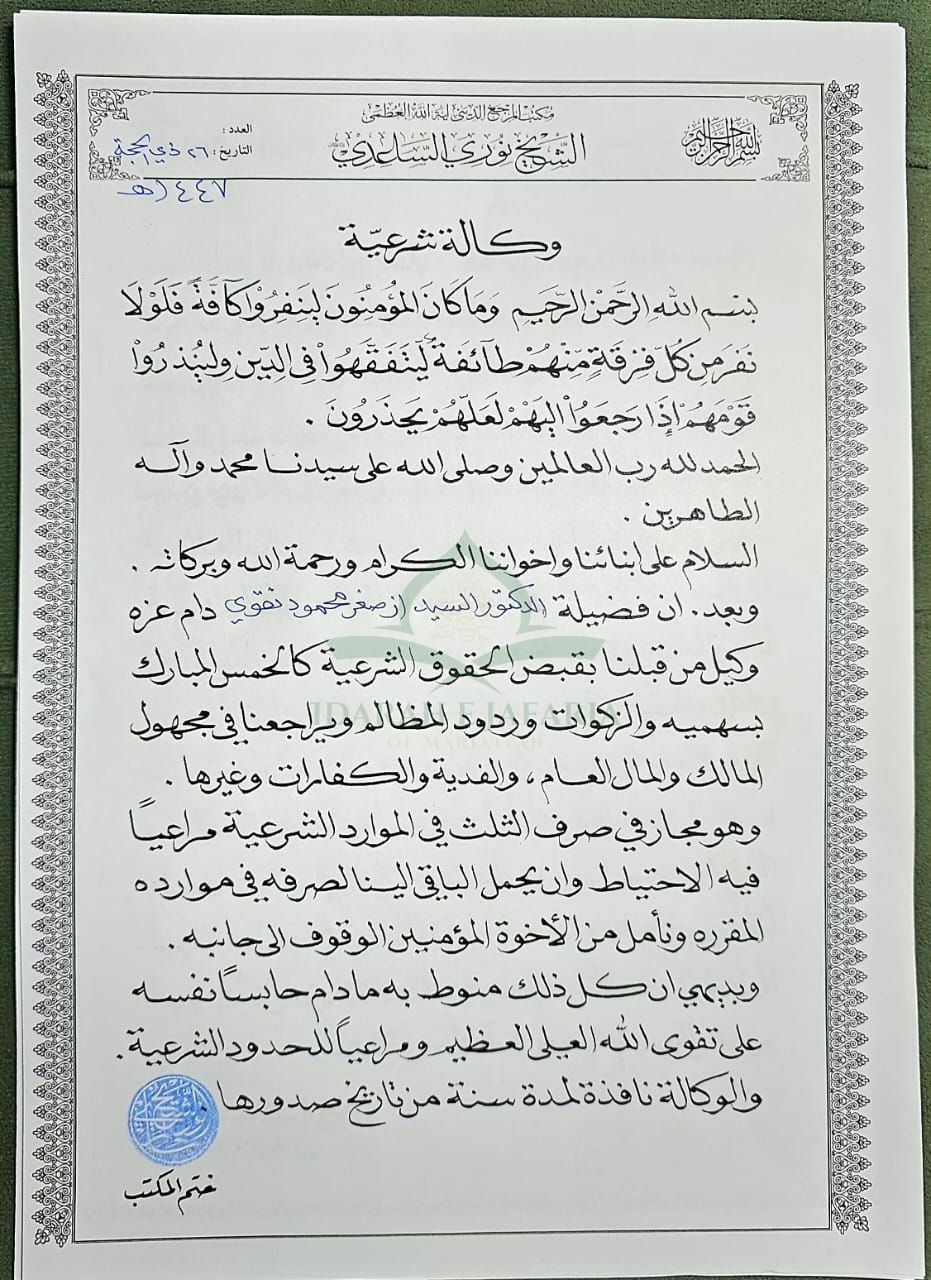 بسم الله الرحمن الرحيم
مكتب المرجع الديني آية الله العظمى
الشيخ نوري الساعدي
العدد :
التاريخ : ٢٦ ذي الحجة
١٤٤٧هـ
وكالة شرعيّة
بِسْمِ اللهِ الرَّحْمٰنِ الرَّحِيمِ وَمَا كَانَ المُؤمِنُونَ لِيَنفِرُوا كَآفَّةً فَلَوْلَا
نَفَرَ مِن كُلِّ فِرْقَةٍ مِّنْهُمْ طَآئِفَةٌ لِّيَتَفَقَّهُوا فِي الدِّينِ وَلِيُنذِرُوا
قَوْمَهُمْ إِذَا رَجَعُوا إِلَيْهِمْ لَعَلَّهُمْ يَحْذَرُونَ .
الحمد لله رب العالمين وصلى الله على سيدنا محمد وآله
الطاهرين .
السلام على ابنائنا واخواننا الكرام ورحمة الله وبركاته .
وبعد . ان فضيلة الدكتور السيد از صغر محمود نقوي دام عزه
وكيل من قبلنا بقبض الحقوق الشرعية كالخمس المبارك
بسهميه والزكوات وردود المظالم ويراجعنا في مجهول
المالك والمال العام ، والفدية والكفارات وغيرها .
وهو مجاز في صرف الثلث في الموارد الشرعية مراعياً
فيه الاحتياط وان يحمل الباقي الينا لصرفه في موارده
المقرره ونأمل من الأخوة المؤمنين الوقوف الى جانبه .
وبديهي ان كل ذلك منوط به مادام حابساً نفسه
على تقوى الله العلي العظيم ومراعياً للحدود الشرعية .
والوكالة نافذة لمدة سنة من تاريخ صدورها .
ختم المكتب
IDARAH E JAFARIA
OF MARJAIYAH